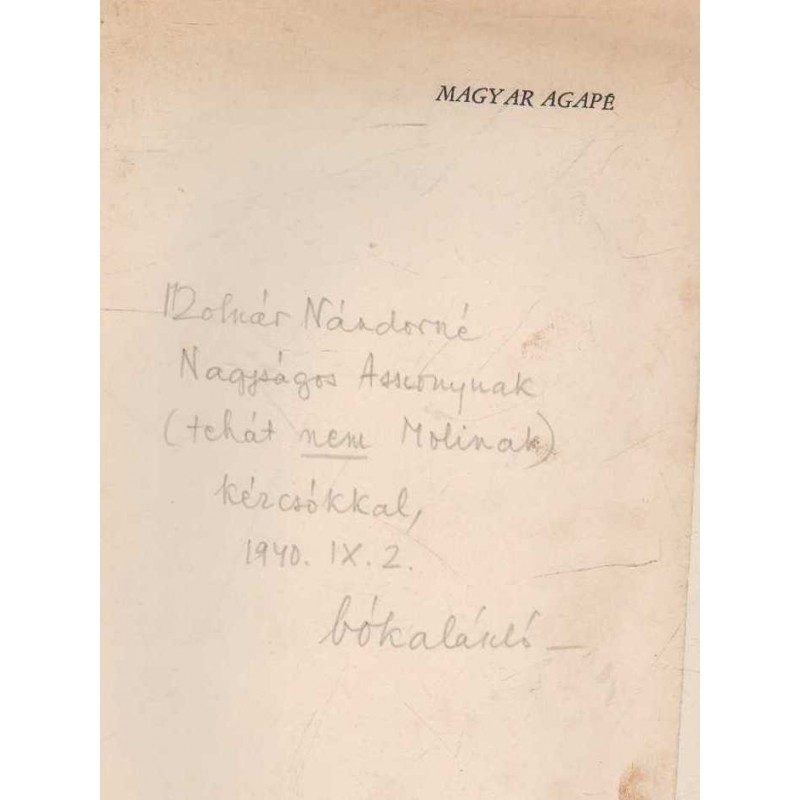 MAGYAR AGAPÉ
Molnár Nándorné
Nagyságos Asszonynak
(tehát nem Molinak)
kézcsókkal,
1940. IX. 2.
bókalászló —